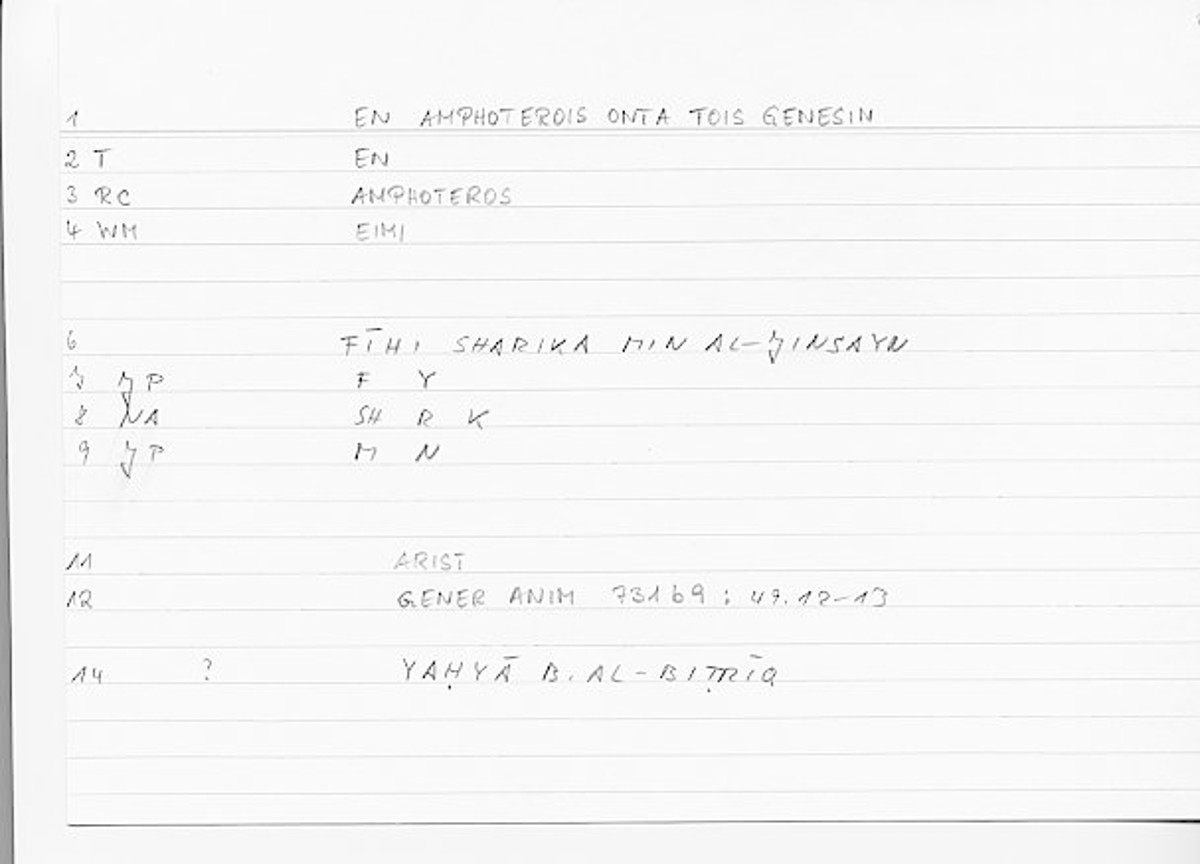 1 EN AMPHOTEROIS ONTA TOIS GENESIN
2 T EN
3 RC AMPHOTEROS
4 WM EIMI
6 FĪHI SHARIKA MIN AL-JINSAYN
7 JP F Y
8 NA SH R K
9 JP M N
11 ARIST
12 GENER ANIM 731b9; 49.12-13
14 ? YAḤYĀ B. AL-BIṬRĪQ